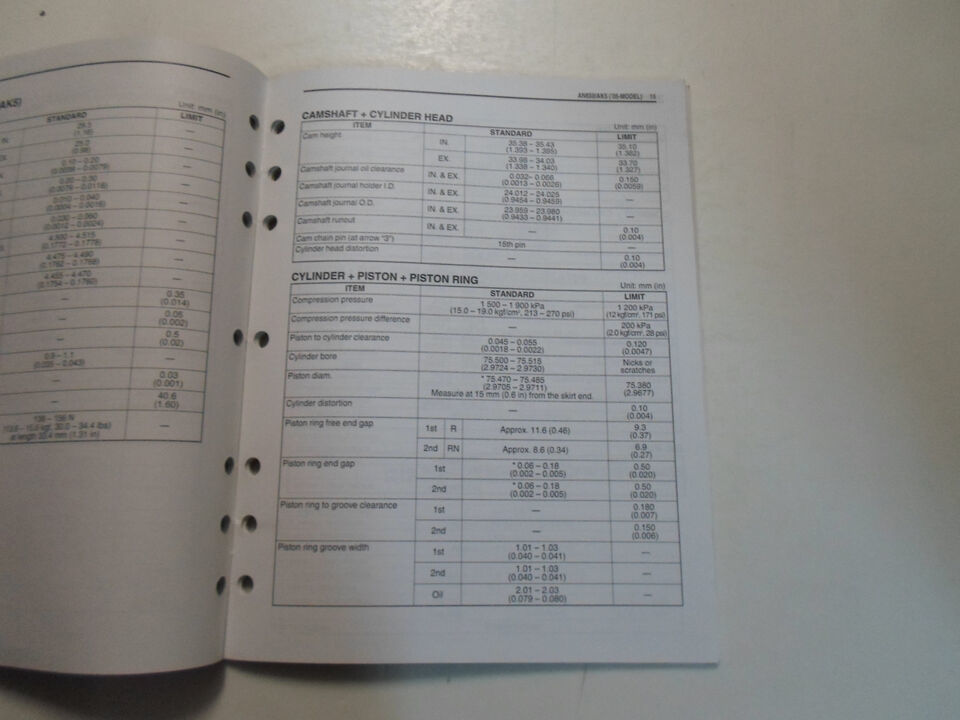 AK5)
Unit: mm (in)
STANDARD LIMIT
—
—
0.10 – 0.20
—
—
—
—
4.500 – 4.515
(0.1772 – 0.1778)
—
4.475 – 4.490
(0.1762 – 0.1768)
—
4.455 – 4.470
(0.1754 – 0.1760)
—
— 0.35
(0.014)
— 0.05
(0.002)
— 0.5
(0.02)
0.9 – 1.1
—
— 0.03
(0.001)
— 40.6
(1.60)
—
at length 33.4 mm (1.31 in)
AN650/AK5 ('05-MODEL) 15
CAMSHAFT + CYLINDER HEAD
Unit: mm (in)
ITEM STANDARD LIMIT
Cam height IN. 35.38 – 35.43
(1.393 – 1.395) 35.10
(1.382)
EX. 33.98 – 34.03
(1.338 – 1.340) 33.70
(1.327)
Camshaft journal oil clearance IN. & EX. 0.032– 0.066
(0.0013 – 0.0026) 0.150
(0.0059)
Camshaft journal holder I.D. IN. & EX. 24.012 – 24.025
(0.9454 – 0.9459) —
Camshaft journal O.D. IN. & EX. 23.959 – 23.980
(0.9433 – 0.9441) —
Camshaft runout IN. & EX. — 0.10
(0.004)
Cam chain pin (at arrow "3") 15th pin —
Cylinder head distortion — 0.10
(0.004)
CYLINDER + PISTON + PISTON RING
Unit: mm (in)
ITEM STANDARD LIMIT
Compression pressure 1 500 – 1 900 kPa
(15.0 – 19.0 kgf/cm², 213 – 270 psi) 1 200 kPa
(12 kgf/cm², 171 psi)
Compression pressure difference — 200 kPa
(2.0 kgf/cm², 28 psi)
Piston to cylinder clearance 0.045 – 0.055
(0.0018 – 0.0022) 0.120
(0.0047)
Cylinder bore 75.500 – 75.515
(2.9724 – 2.9730) Nicks or
scratches
Piston diam. * 75.470 – 75.485
(2.9705 – 2.9711)
Measure at 15 mm (0.6 in) from the skirt end. 75.380
(2.9677)
Cylinder distortion — 0.10
(0.004)
Piston ring free end gap 1st R Approx. 11.6 (0.46) 9.3
(0.37)
2nd RN Approx. 8.6 (0.34) 6.9
(0.27)
Piston ring end gap 1st * 0.06 – 0.18
(0.002 – 0.005) 0.50
(0.020)
2nd * 0.06 – 0.18
(0.002 – 0.005) 0.50
(0.020)
Piston ring to groove clearance 1st — 0.180
(0.007)
2nd — 0.150
(0.006)
Piston ring groove width 1st 1.01 – 1.03
(0.040 – 0.041) —
2nd 1.01 – 1.03
(0.040 – 0.041) —
Oil 2.01 – 2.03
(0.079 – 0.080) —